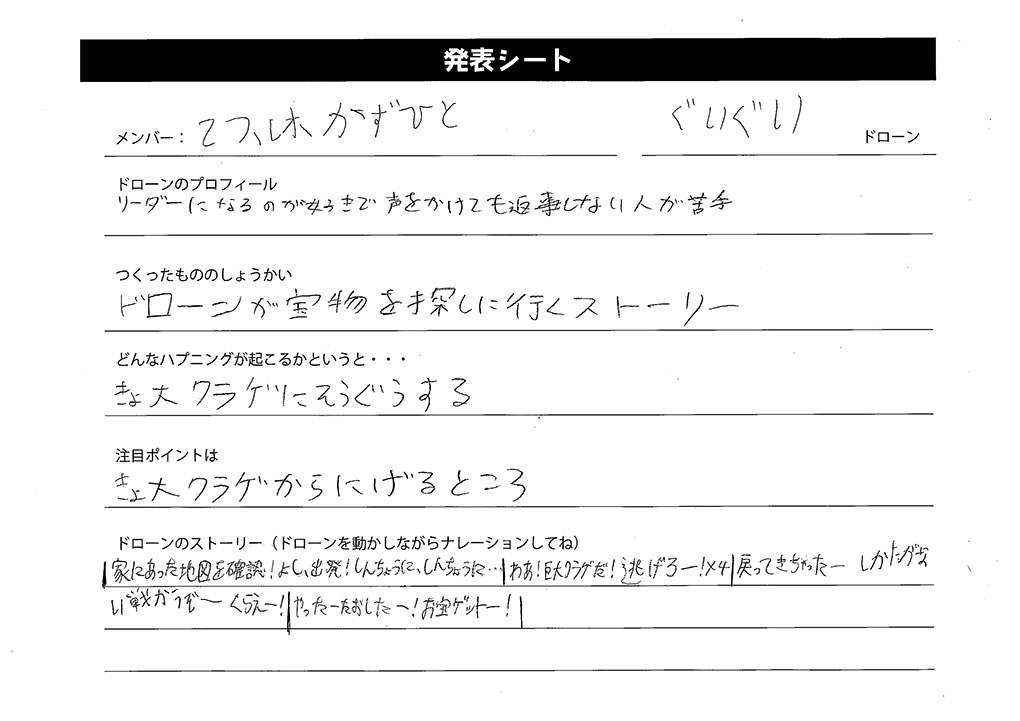 発表シート
メンバー： かずひと ぐいぐい ドローン
ドローンのプロフィール
リーダーになるのが好きで声をかけても返事しない人が苦手
つくったもののしょうかい
ドローンが宝物を探しに行くストーリー
どんなハプニングが起こるかというと・・・
きょ大クラゲにそうぐうする
注目ポイントは
きょ大クラゲからにげるところ
ドローンのストーリー（ドローンを動かしながらナレーションしてね）
家にあった地図を確認！よし、出発！しんちょうに、しんちょうに…｜わあ！巨大クラゲだ！逃げろー！×4｜戻ってきちゃったー しかたがな
い戦がうぞ〜 くらえー！｜やったーたおしたー！お宝ゲットー！｜